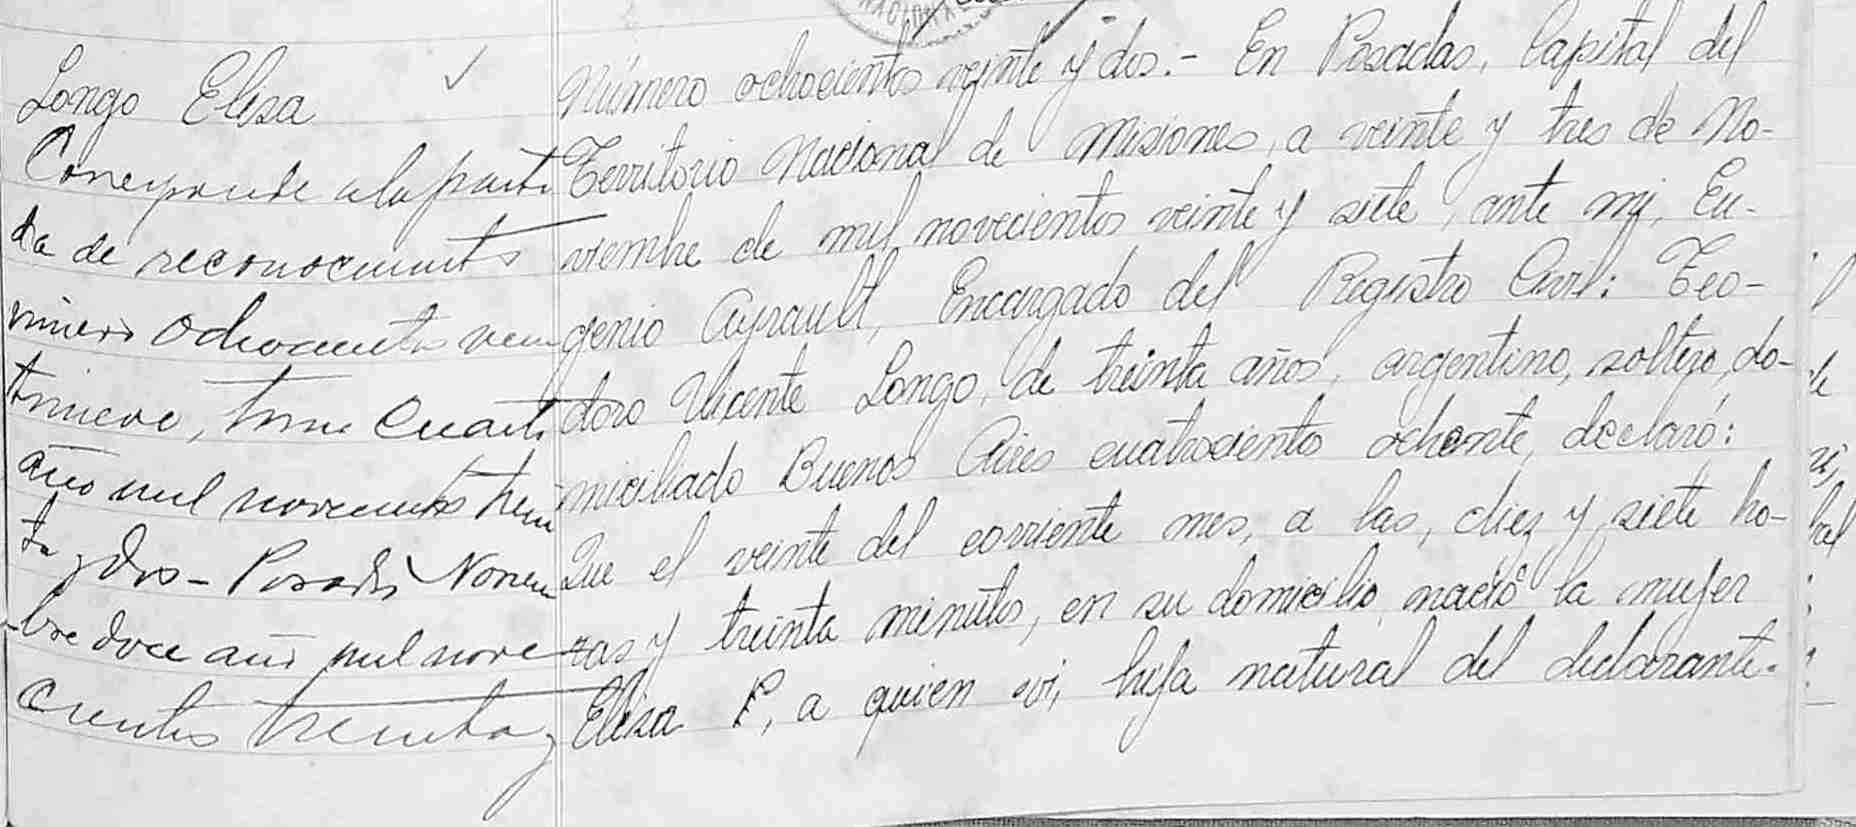 Longo Elisa
Corresponde a la parti
da de reconocimiento
número ochocientos vein
tinueve, tomo cuarto
año mil novecientos trein
ta y dos - Posadas Noviem
bre doce año mil nove
cientos treinta y
Número ochocientos veinte y dos.- En Posadas, Capital del
Territorio Nacional de Misiones, a veinte y tres de No-
viembre de mil novecientos veinte y siete, ante mi, Eu-
genio Ayrault, Encargado del Registro Civil: Teo-
doro Vicente Longo, de treinta años, argentino, soltero, do-
miciliado Buenos Aires cuatrociento ochente, declaró:
Que el veinte del corriente mes, a las, diez y siete ho-
ras y treinta minutos, en su domicilio, nació la mujer
Elisa P, a quien vi, hija natural del declarante.